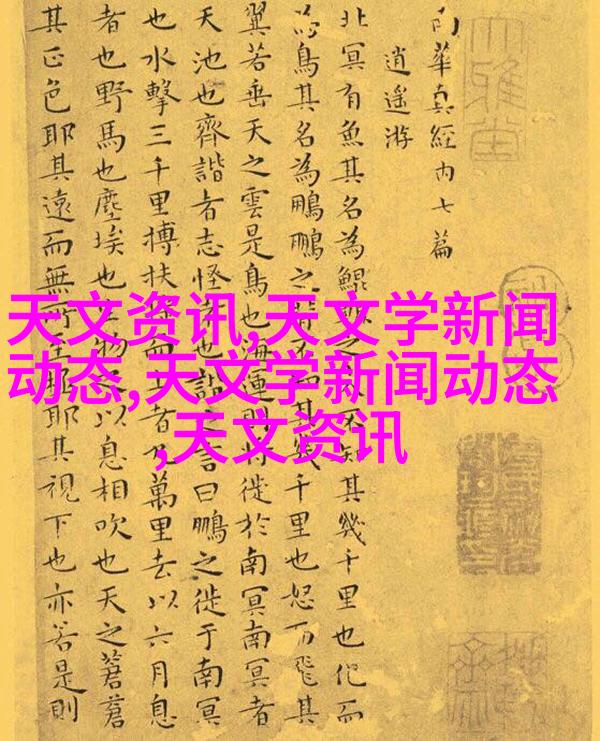 天文资讯,天文学新闻
动态,天文学新闻动态
,天文资讯
南華真經内七篇
逍遥游
北冥有魚其名為鯤鯤之大不知其幾千里也化而
為鳥其名為鵬鵬之背不知其幾千里也怒而飛其
翼若垂天之雲是鳥也海運則將徙於南冥南冥者
天池也齊諧者志怪者也諧之言曰鵬之徙于南冥
也水擊三千里摶扶摇而上者九萬里去以六月息
者也野馬也塵埃也生物之以息相吹也天之蒼蒼
其正色耶其遠而無所至極耶其視下也亦若是則
大雅堂